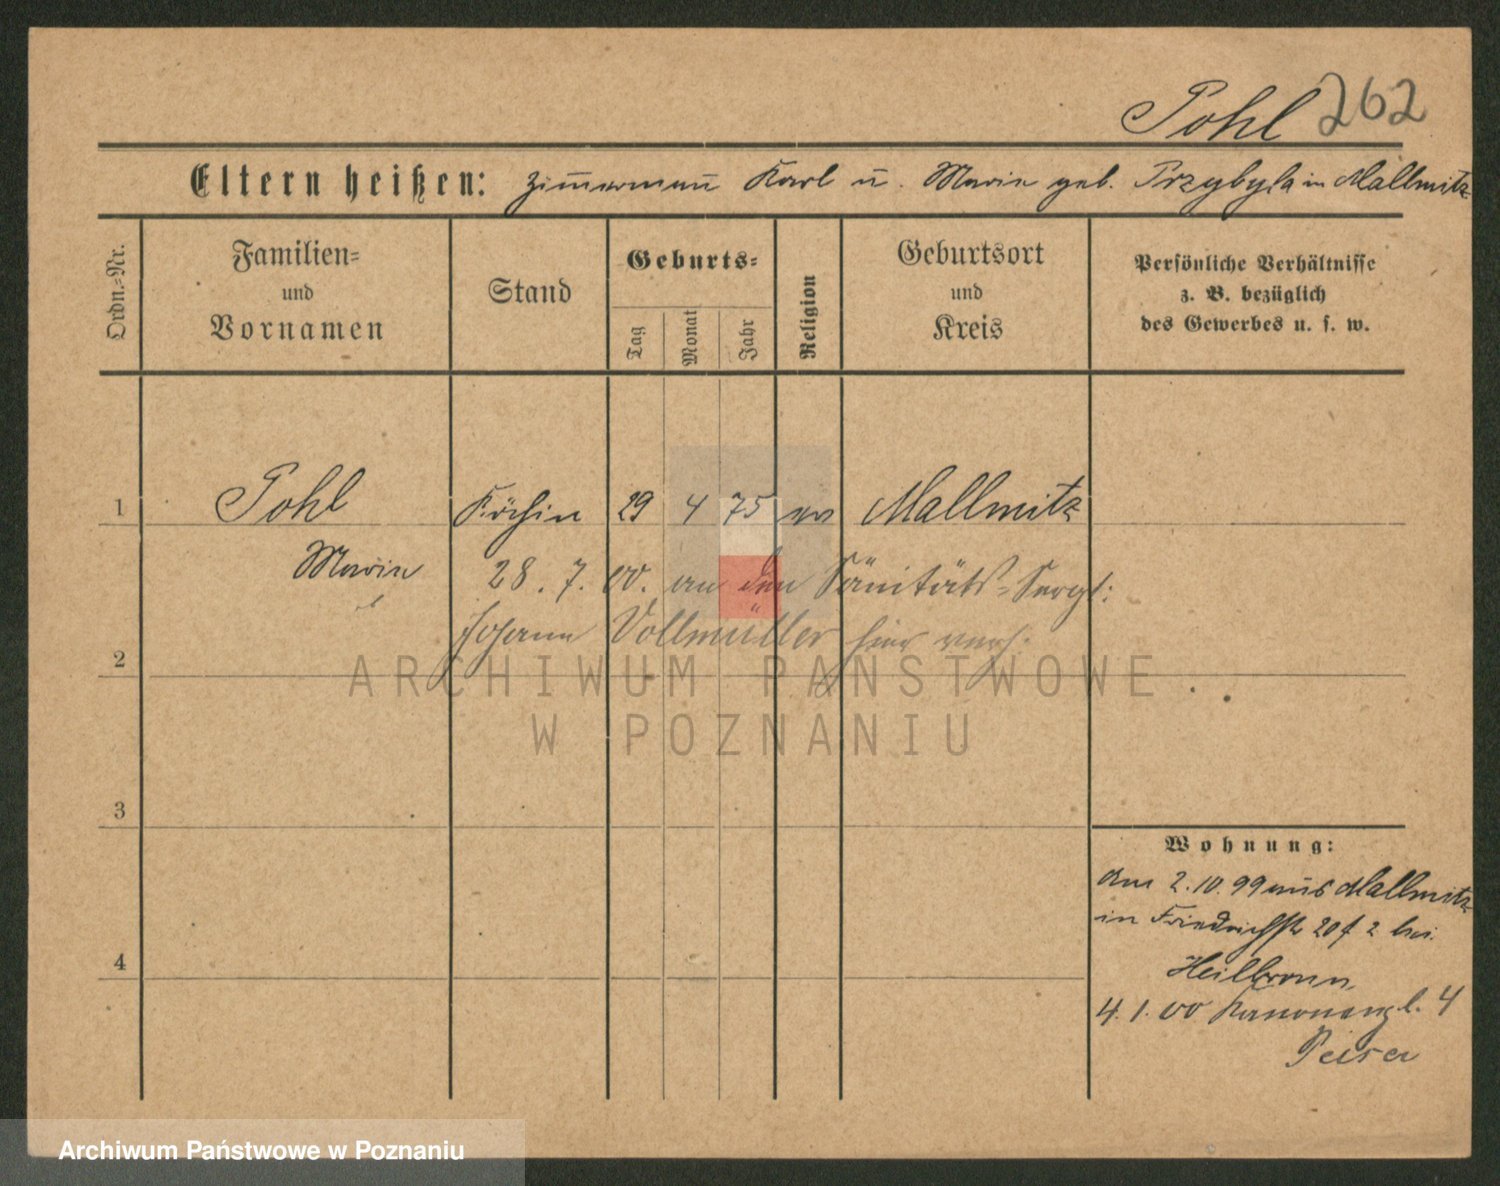 Pohl 262
Eltern heißen: Zimmerman Karl u. Marie geb. Przybyla in Mallmitz
Ordn.-Nr.
Familien-
und
Vornamen
Stand
Geburts-
Tag
Monat
Jahr
Religion
Geburtsort
und
Kreis
Persönliche Verhältnisse
z. B. bezüglich
des Gewerbes u. s. w.
1 Pohl Köchin 29 4 75 ev Mallmitz
Marie 28. 7. 00. an den Sanitäts-Sergt:
Johann Vollmüller hier verh.
2
ARCHIWUM PAŃSTWOWE
W POZNANIU
3
Wohnung:
am 2.10.99 aus Mallmitz
in Friedrichstr 20 2 bei
4
Heilbronn
4. 1. 00 Kanonenpl. 4
Peiser
Archiwum Państwowe w Poznaniu